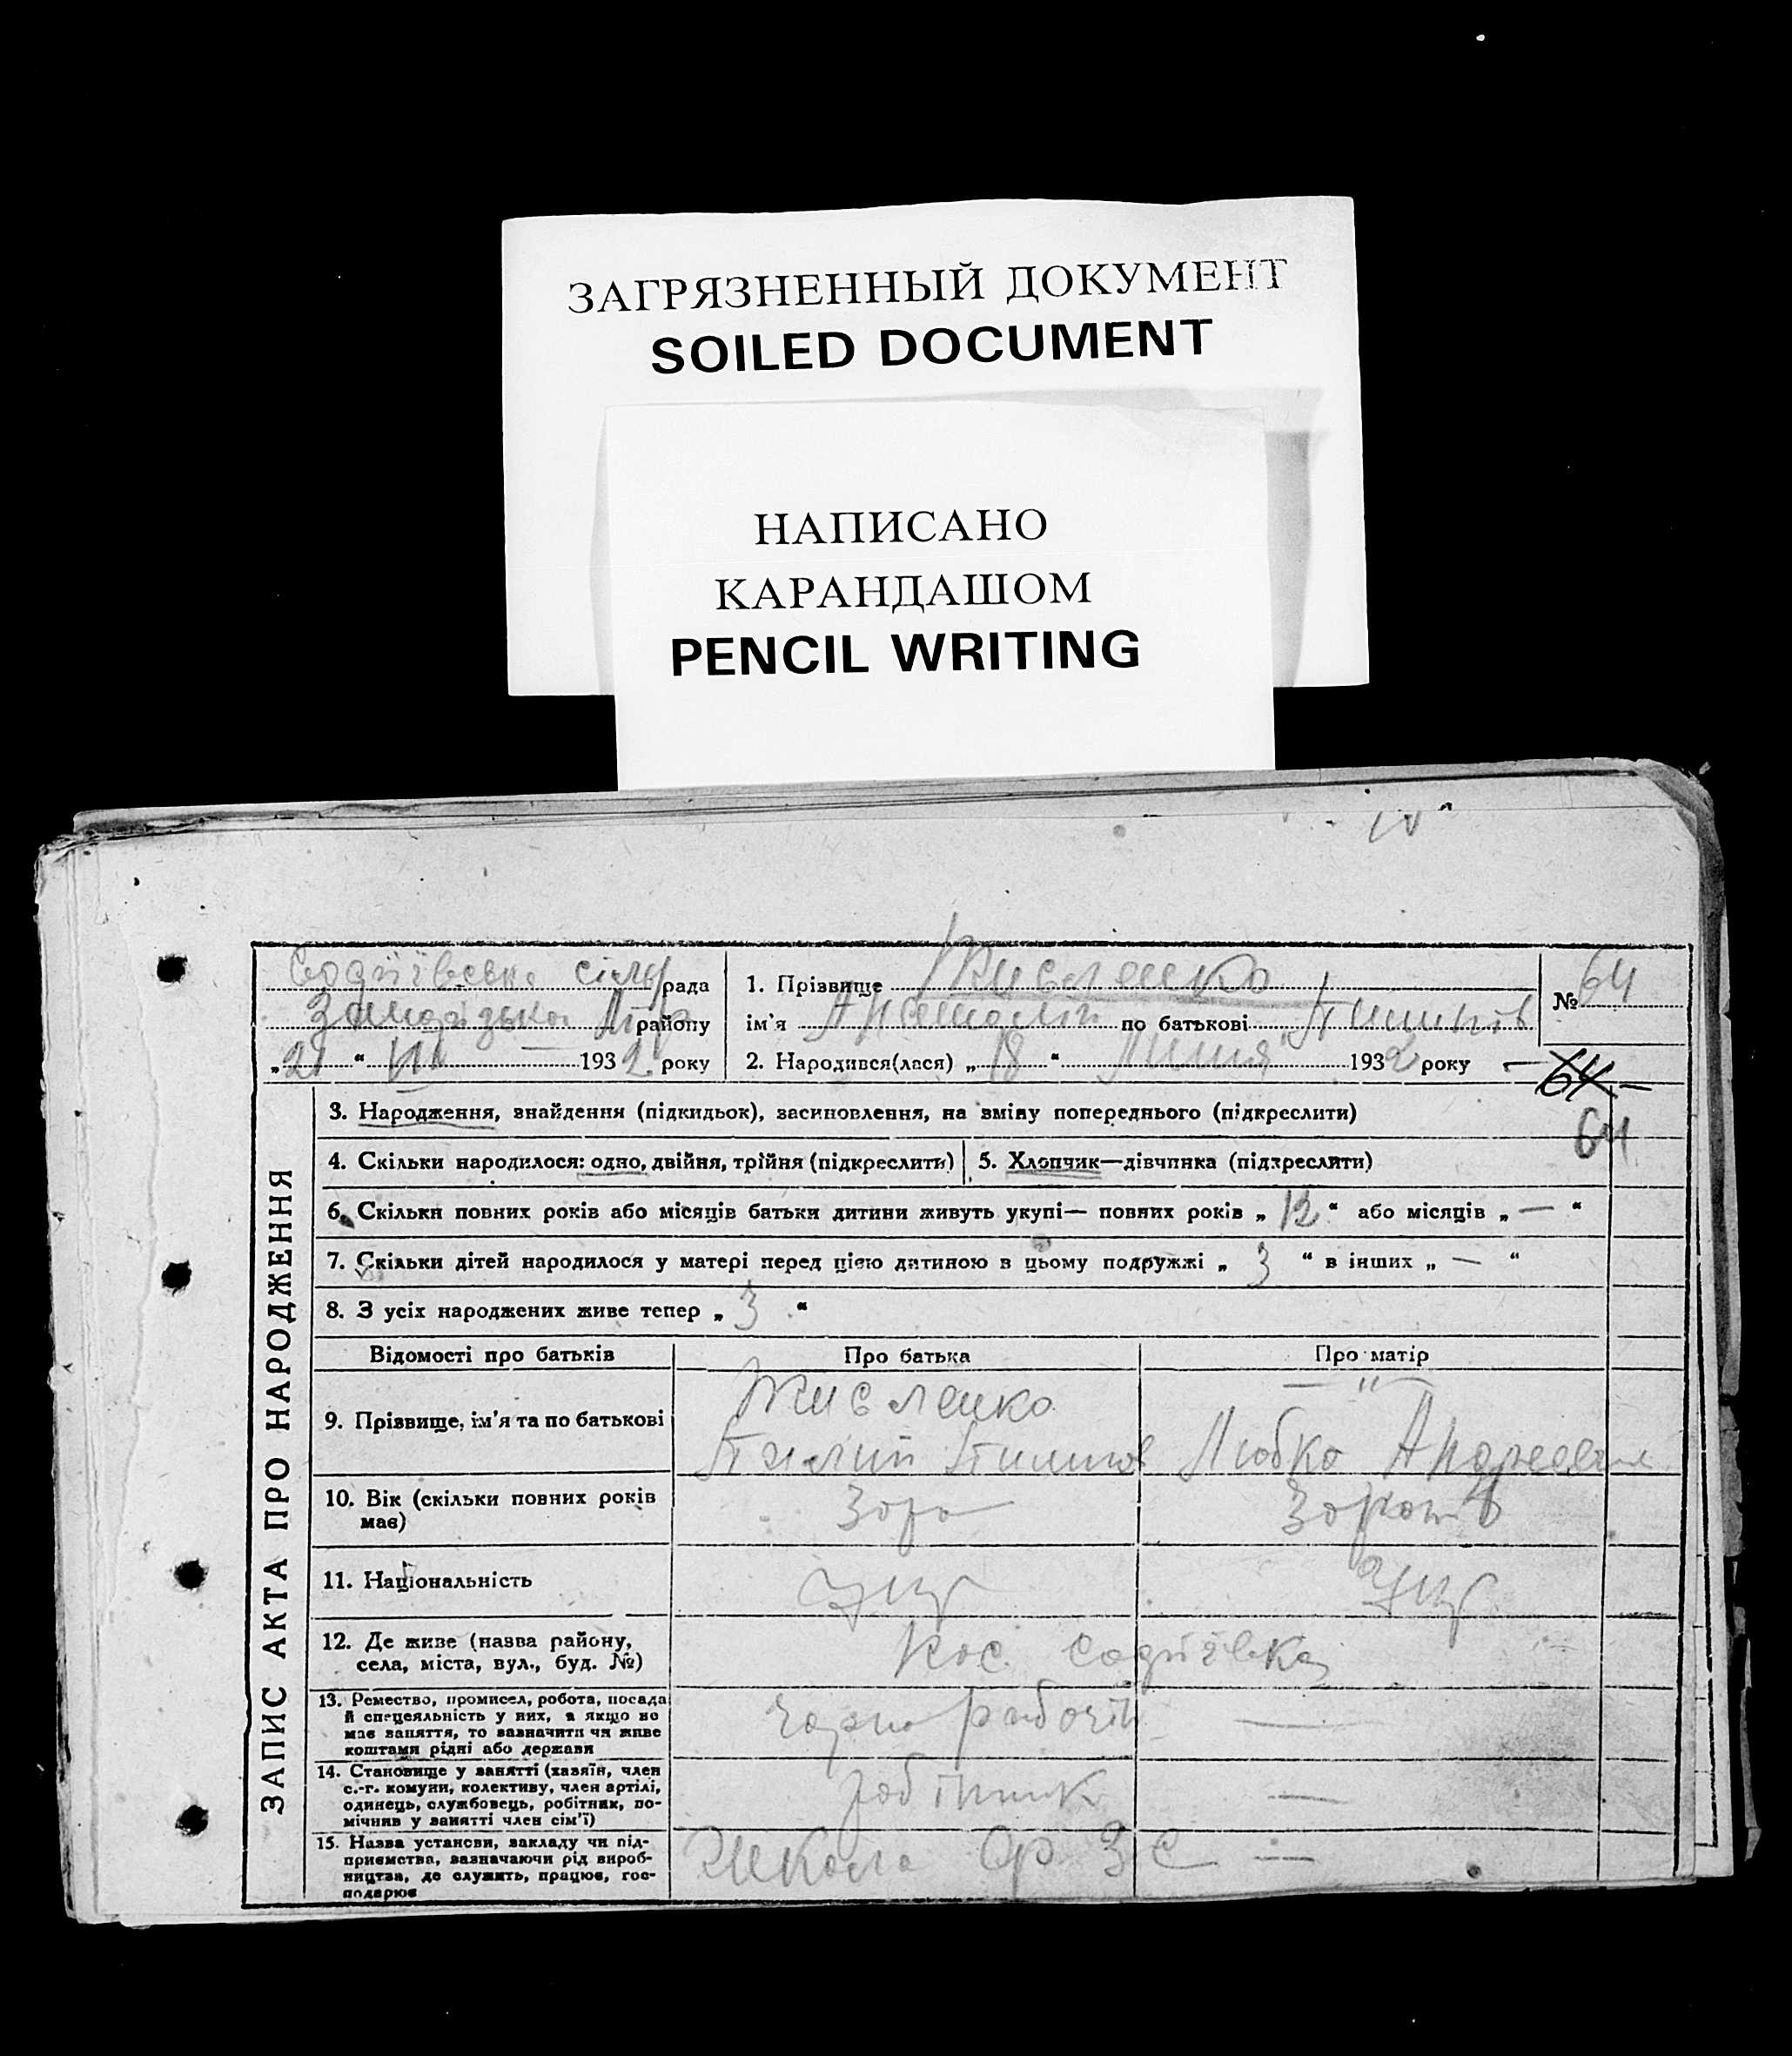 ЗАГРЯЗНЕННЫЙ ДОКУМЕНТ
SOILED DOCUMENT
НАПИСАНО
КАРАНДАШОМ
PENCIL WRITING
ЗАПИС АКТА ПРО НАРОДЖЕННЯ
рада
району
„21“ 1932 року
1. Прізвище
№ 64
ім'я по батькові
2. Народився(лася) „18“ 1932 року
64
64
3. Народження, знайдення (підкидьок), засиновлення, на зміну попереднього (підкреслити)
4. Скільки народилося: одно, двійня, трійня (підкреслити)
5. Хлопчик—дівчинка (підкреслити)
6. Скільки повних років або місяців батьки дитини живуть укупі— повних років „12“ або місяців „—“
7. Скільки дітей народилося у матері перед цією дитиною в цьому подружжі „3“ в інших „—“
8. З усіх народжених живе тепер „3“
Відомості про батьків
Про батька
Про матір
9. Прізвище, ім'я та по батькові
— " —
Любка
10. Вік (скільки повних років
має)
11. Національність
Укр
Укр.
12. Де живе (назва району,
села, міста, вул., буд. №)
13. Ремество, промисел, робота, посада
й спецеяльність у них, а якщо не
має заняття, то зазначити чи живе
коштами рідні або держави
чорно рабочій
—
14. Становище у занятті (хазяїн, член
с.-г. комуни, колективу, член артілі,
одинець, службовець, робітник, по-
мічник у занятті член сім'ї)
робітник
—
15. Назва установи, закладу чи під-
приємства, зазначаючи рід вироб-
ництва, де служить, працює, гос-
подарює
Школа
—